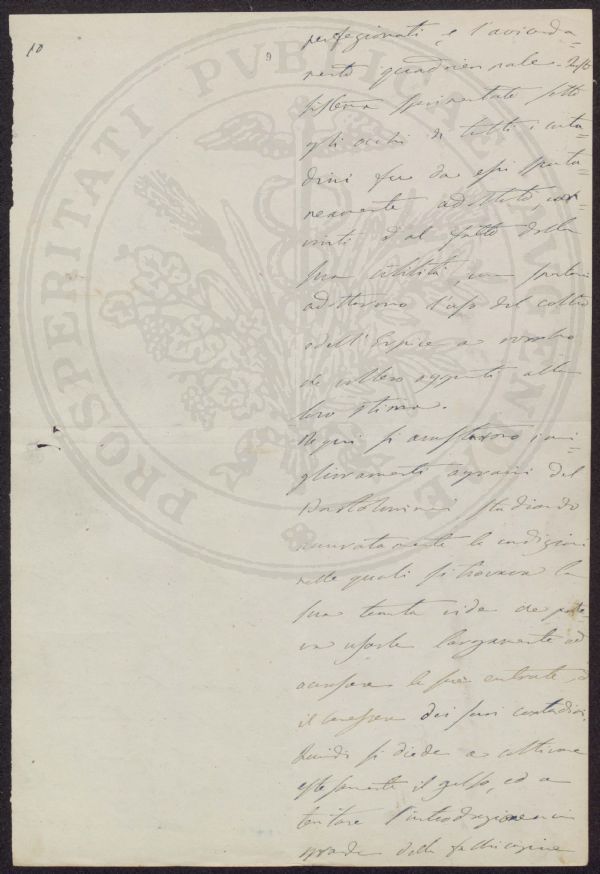 10
9
perfezionati, e l'avvicenda=
mento quadriennale. Il
sistema sperimentato sotto
gli occhi di tutti i conta=
dini fu da essi sponta=
neamente adottato, con=
vinti dal fatto della
sua utilità, con
adottarono l'uso del coltro
e dell'Erpice a rombo
che
loro stima.
Nè qui si arrestarono i mi=
glioramenti agrarii del
Bartolommei studiando
accuratamente le condizioni
nelle quali si trovava la
sua tenuta vide che pote=
va usarle largamente ad
accrescere le sue entrate, e
il benessere dei suoi contadini.
Quindi si diede a coltivare
estesamente il gelso, ed a
tentare l'introduzione in
grande della fabbricazione
PROSPERITATI PUBLICAE AUGENDAE